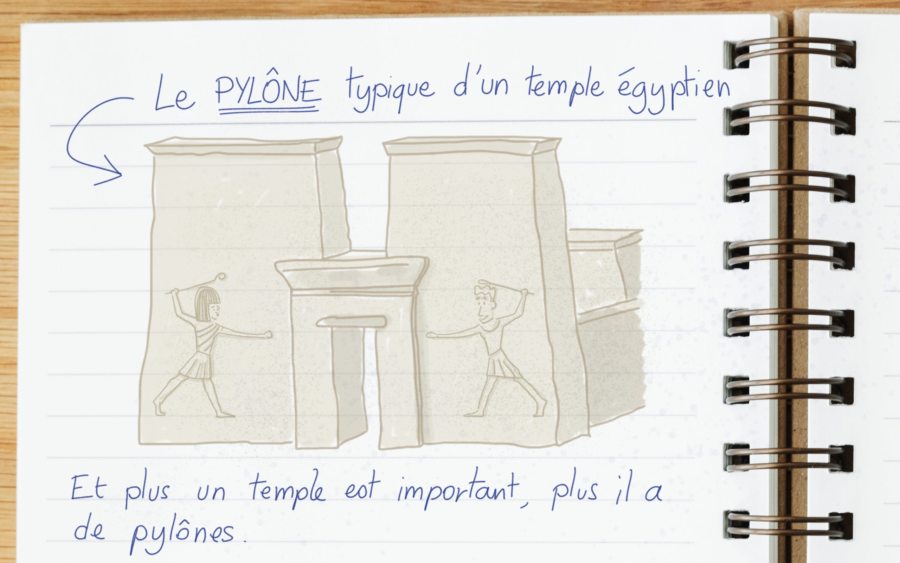 Le PYLÔNE typique d'un temple égyptien
Et plus un temple est important, plus il a
de pylônes.